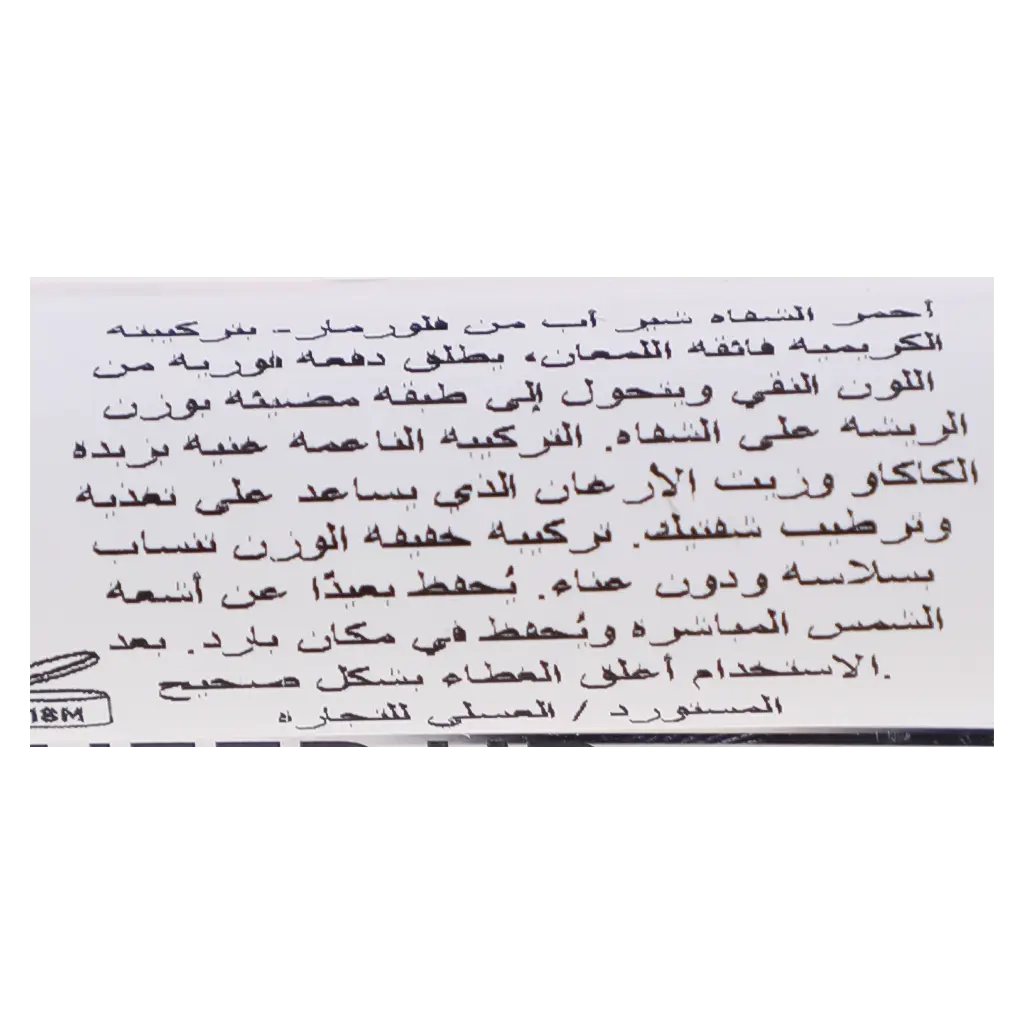 أحمر الشفاه شير أب من فلورمار- بتركيبته
الكريمية فائقة اللمعان، يطلق دفعة فورية من
اللون النقي ويتحول إلى طبقة مضيئة بوزن
الريشة على الشفاه. التركيبة الناعمة غنية بزبدة
الكاكاو وزيت الأرغان الذي يساعد على تغذية
وترطيب شفتيك. تركيبة خفيفة الوزن تنساب
بسلاسة ودون عناء. يُحفظ بعيدًا عن أشعة
الشمس المباشرة ويُحفظ في مكان بارد. بعد
الاستخدام أغلق الغطاء بشكل صحيح.
المستورد / العسلي للتجارة
18M